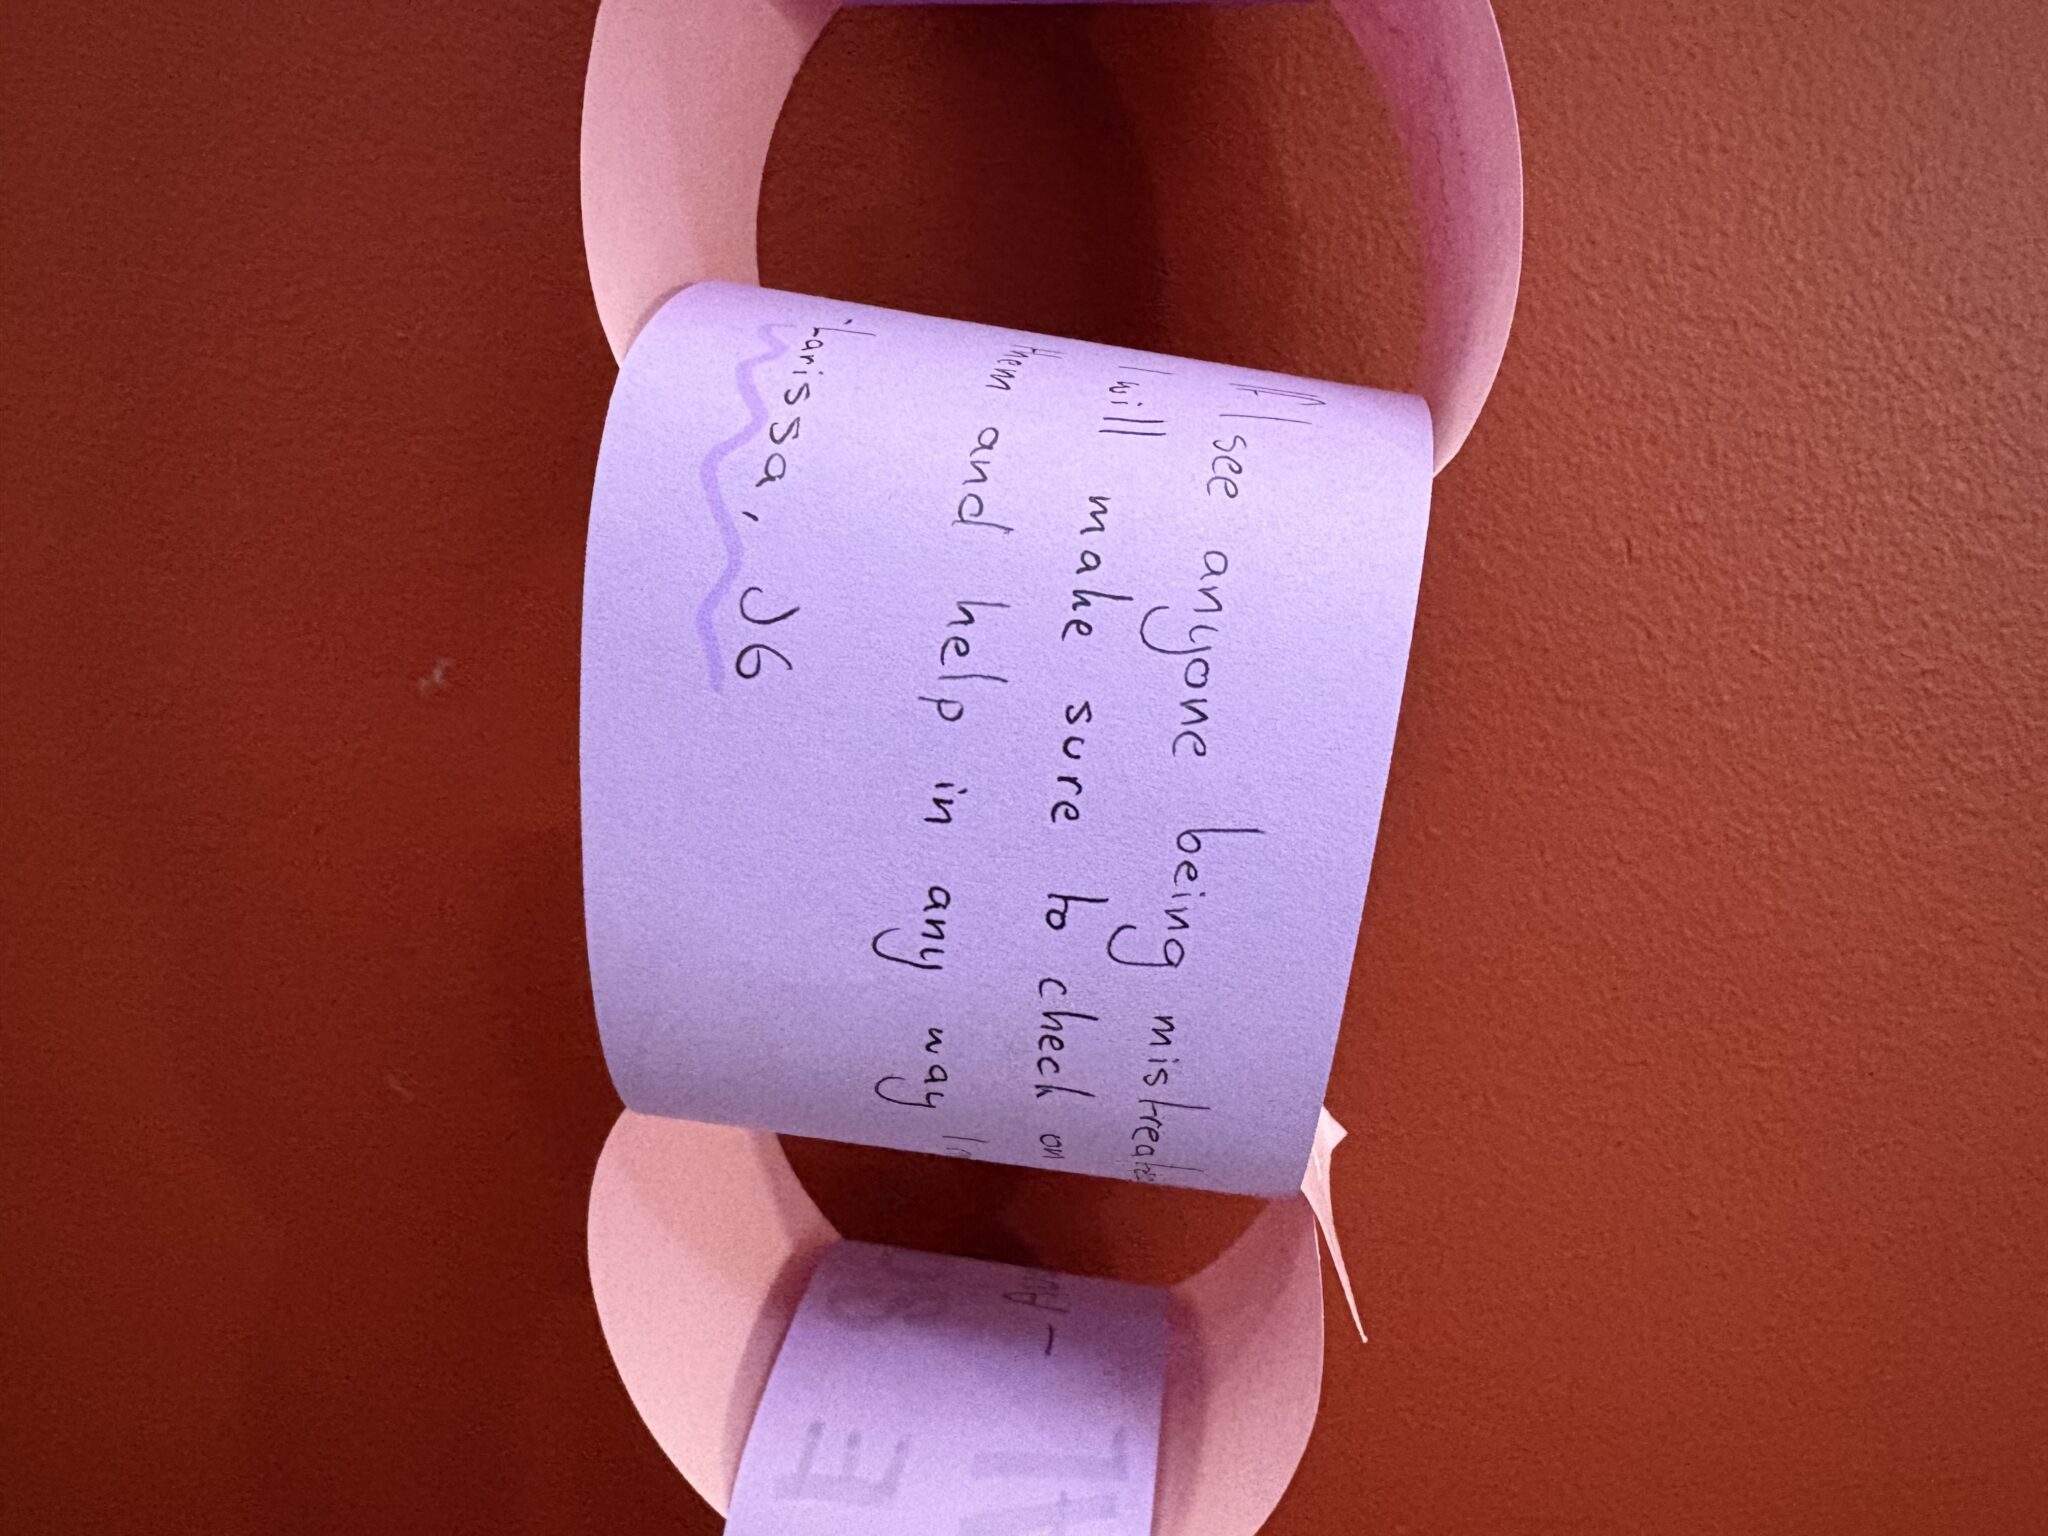 If I see anyone being
I will make sure to check on
them and help in any way
Larissa, J6